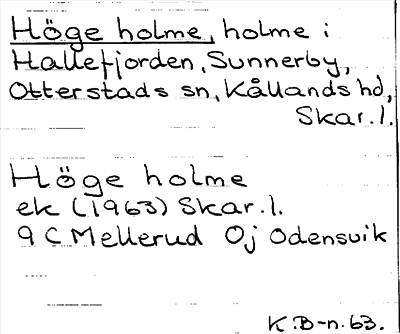 Höge holme, holme i
Hallefjorden, Sunnerby,
Otterstads sn, Kållands hd,
Skar.l.
Höge holme
ek (1963) Skar.l.
9 C Mellerud Oj Odensvik
K.B-n.63.